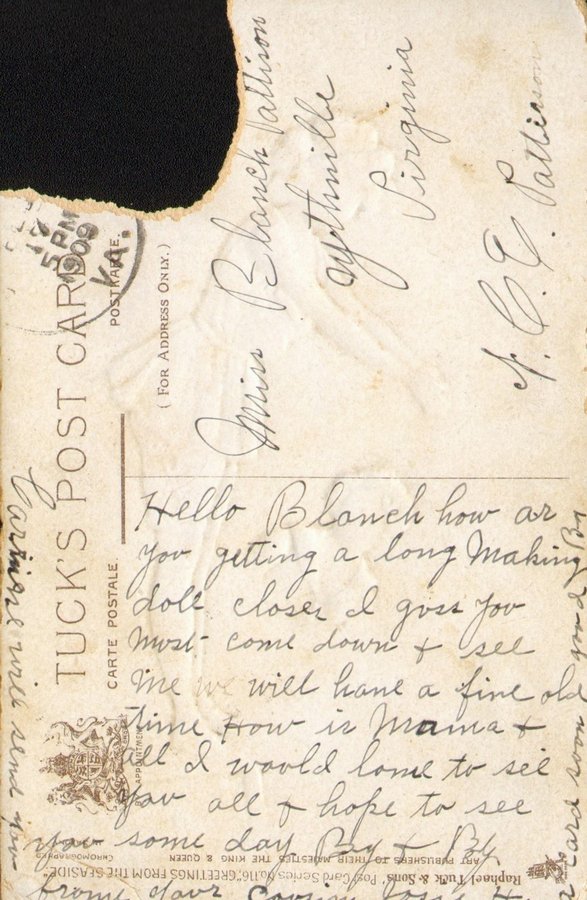 TUCK'S POST CARD
CARTE POSTALE
POSTKARTE.
(FOR ADDRESS ONLY.)
5 PM
1909
VA.
Miss Blanch Pattison
Wythville
Virginia
C. E. Patterson
Hello Blanch how ar
you getting a long Making
doll closes I guss you
must come down & see
me we will have a fine old
time How is Mama &
all I would lome to see
you all & hope to see
you some day By & By
frome your Cousin Josie
Carimore will send you
card soon good By
BY APPOINTMENT
Raphael Tuck & Sons' "Post Card Series No. 116 "GREETINGS FROM THE SEASIDE"
ART PUBLISHERS TO THEIR MAJESTIES THE KING & QUEEN
CHROMOGRAPHED